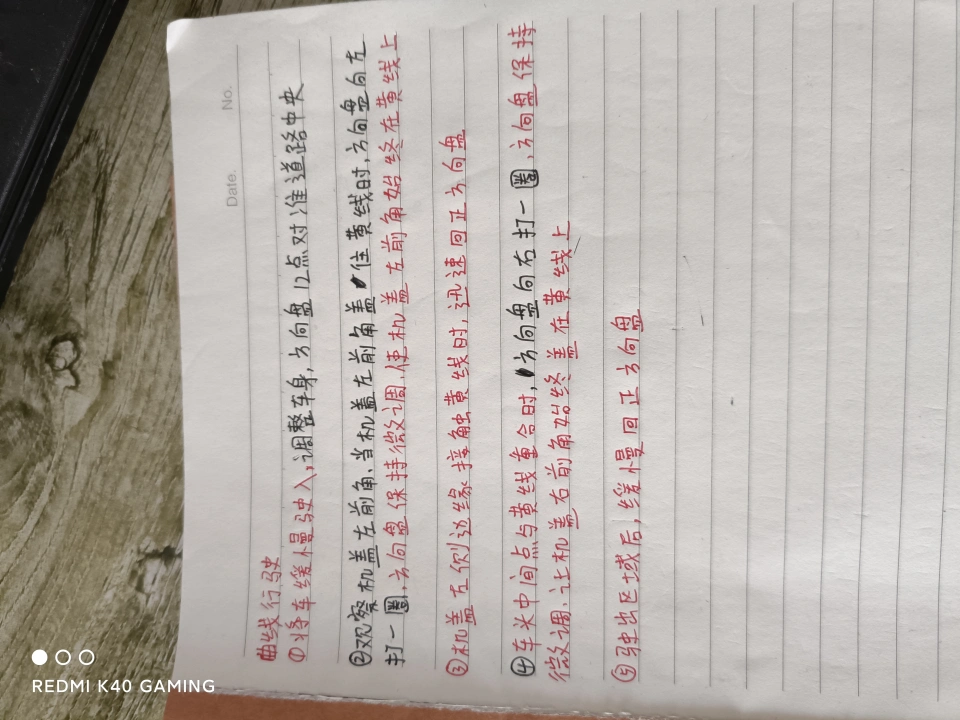 No.
Date.
曲线行驶
①将车缓慢驶入,调整车身,方向盘12点对准道路中央
②观察机盖左前角、当机盖左前角盖住黄线时,方向盘向左
打一圈,方向盘保持微调,使机盖左前角始终在黄线上
③机盖左侧边缘接触黄线时,迅速回正方向盘
④车米中间点与黄线重合时,方向盘向右打一圈,方向盘保持
微调,让机盖右前角始终盖在黄线上
⑤驶出区域后,缓慢回正方向盘
REDMI K40 GAMING